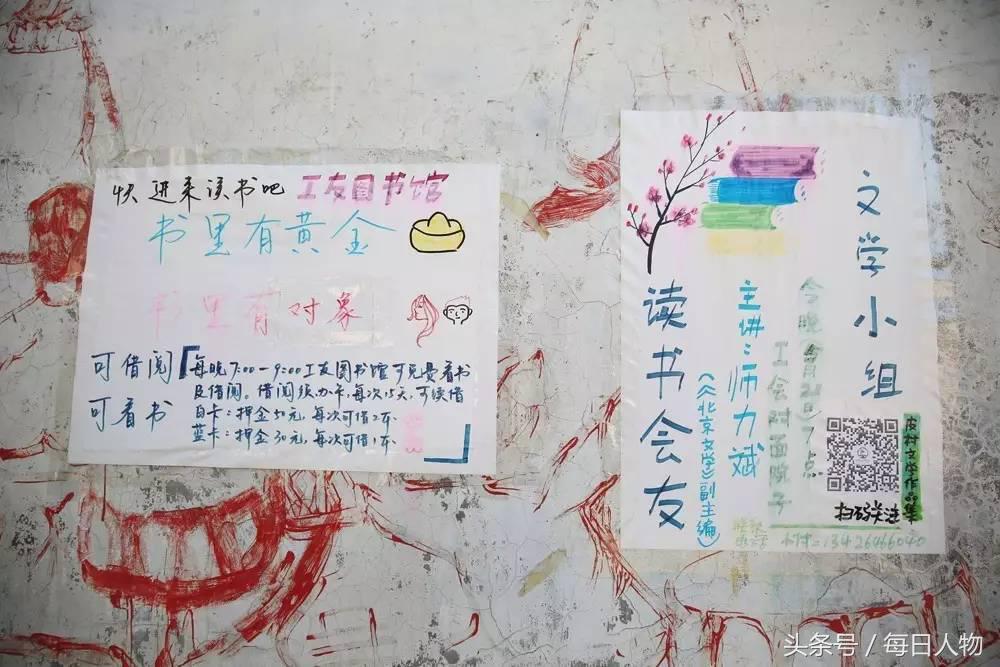 快进来读书吧 工友图书馆
书里有黄金
书里有对象
可借阅
可看书
每晚7:00-9:00工友图书馆可免费看书
及借阅。借阅须办卡,每次15天,可续借
白卡:押金50元,每次可借2本
蓝卡:押金30元,每次可借1本
文学小组
今晚
7点
工会对面院子
主讲:师力斌
(《北京文学》副主编)
读书会友
皮村文学作品集
扫码关注
小付:13426466040
头条号 / 每日人物